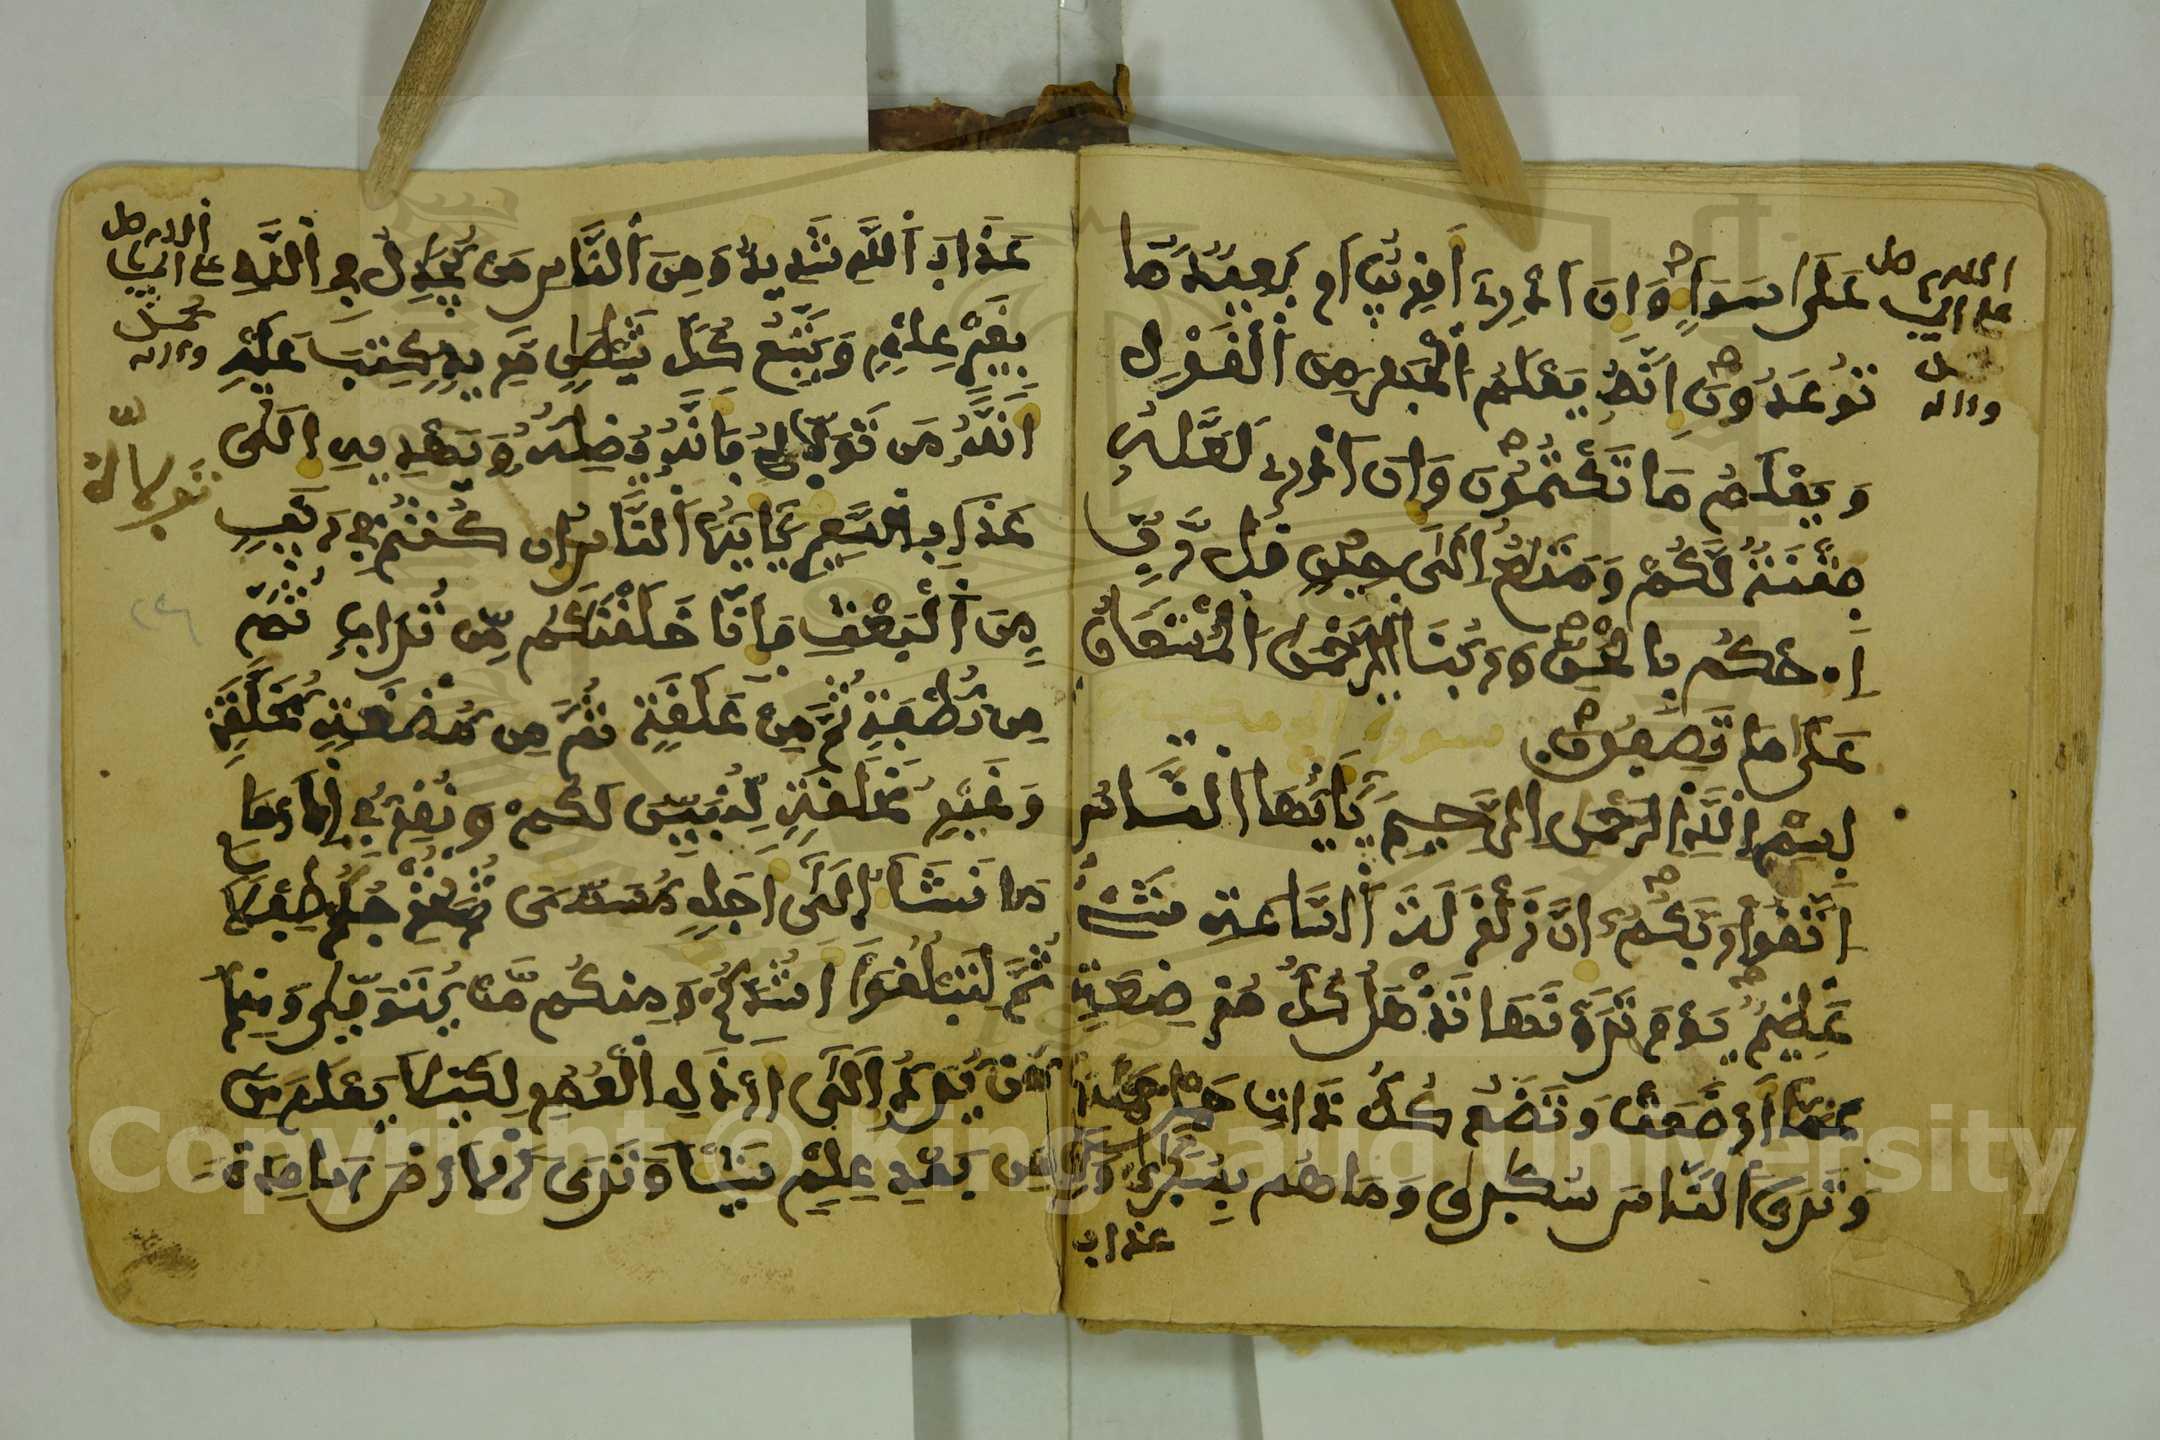 اللهم صل
على النبي
محمد
وءاله
على سواء وان ادرى اقريب ام بعيد ما
توعدون انه يعلم الجهر من القول
ويعلم ما تكتمون وان ادرى لعله
فتنة لكم ومتع الى حين قل رب
احكم بالحق وربنا الرحمن المستعان
على ما تصفون
بسم الله الرحمن الرحيم يايها الناس
اتقوا ربكم ان زلزلة الساعة شىء
عظيم يوم ترونها تذهل كل مرضعة
عما ارضعت وتضع كل ذات حمل حملها
وترى الناس سكرى وما هم بسكرى ولكن
عذاب
اللهم صل
على النبي
محمد
وءاله
عذاب الله شديد ومن الناس من يجدل في الله
بغير علم ويتبع كل شيطن مريد كتب عليه
انه من تولاه فانه يضله ويهديه الى
عذاب السعير يايها الناس ان كنتم في ريب
من البعث فانا خلقنكم من تراب ثم
من نطفة ثم من علقة ثم من مضغة مخلقة
وغير مخلقة لنبين لكم ونقر في الارحام
ما نشاء الى اجل مسمى ثم نخرجكم طفلا
ثم لتبلغوا اشدكم ومنكم من يتوفى ومنكم
من يرد الى ارذل العمر لكيلا يعلم من
بعد علم شيئا وترى الارض هامدة
Copyright © King Saud University